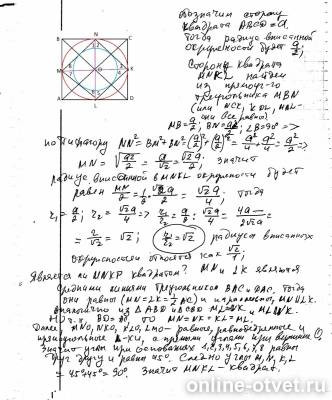 B N C
M O K
A L D
Обозначим сторону
квадрата ABCD = a.
Тогда радиус вписанной
окружности будет a/2;
Сторону квадрата
MNKL найдем
из прямоуго-
треугольника MBN
(или NCK, KDL, MAL-
они все равны)
MB = a/2; BN = a/2; ∠B = 90° =>
по пифагору MN² = BM² + BN² = (a/2)² + (a/2)² = a²/4 + a²/4 = a²/2 =>
MN = √a²/2 = a/√2 = √2a/2; значит
радиус вписанной в MNKL окружности будет
равен MN/2 = 1/2 · √2a/2 = √2a/4; тогда
r₁ = a/2; r₂ = √2a/4 => r₁/r₂ = a/2 : √2a/4 = 4a/2√2a =
= 2/√2 = √2; r₁/r₂ = √2 радиусы вписанных
окружностей относятся как √2/1;
Является ли MNKP квадратом? MN и LK являются
средними линиями треугольников BAC и DAC. Тогда
они равны (MN = LK = 1/2 AC) и параллельны, MN ∥ LK.
Аналогично из ΔABD и ΔCBD ML = NK и ML ∥ NK.
Далее MNO, NKO, KLO, LMO – равные, равнобедренные и
прямоугольные Δ-ки, с прямыми углами при вершине O,
значит углы при основаниях 1,2,3,4,5,6,7,8 равны
друг другу и равны 45°. Следно углы M, N, K, L
= 45+45° = 90°. Значит MNKL – квадрат.
online-otvet.ru